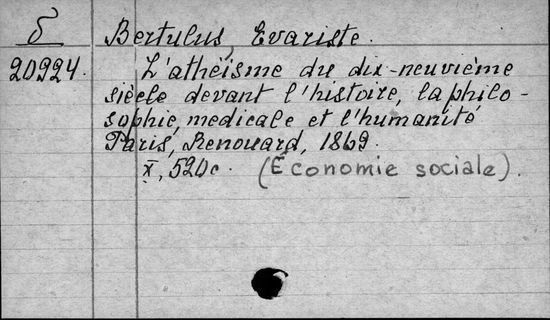 δ Bertulus, Evariste.
20924. L'athéisme du dix-neuvième
siècle devant l'histoire, la philo-
sophie, medicale et l'humanité
Paris, Renouard, 1869.
X, 520c. (Économie sociale).